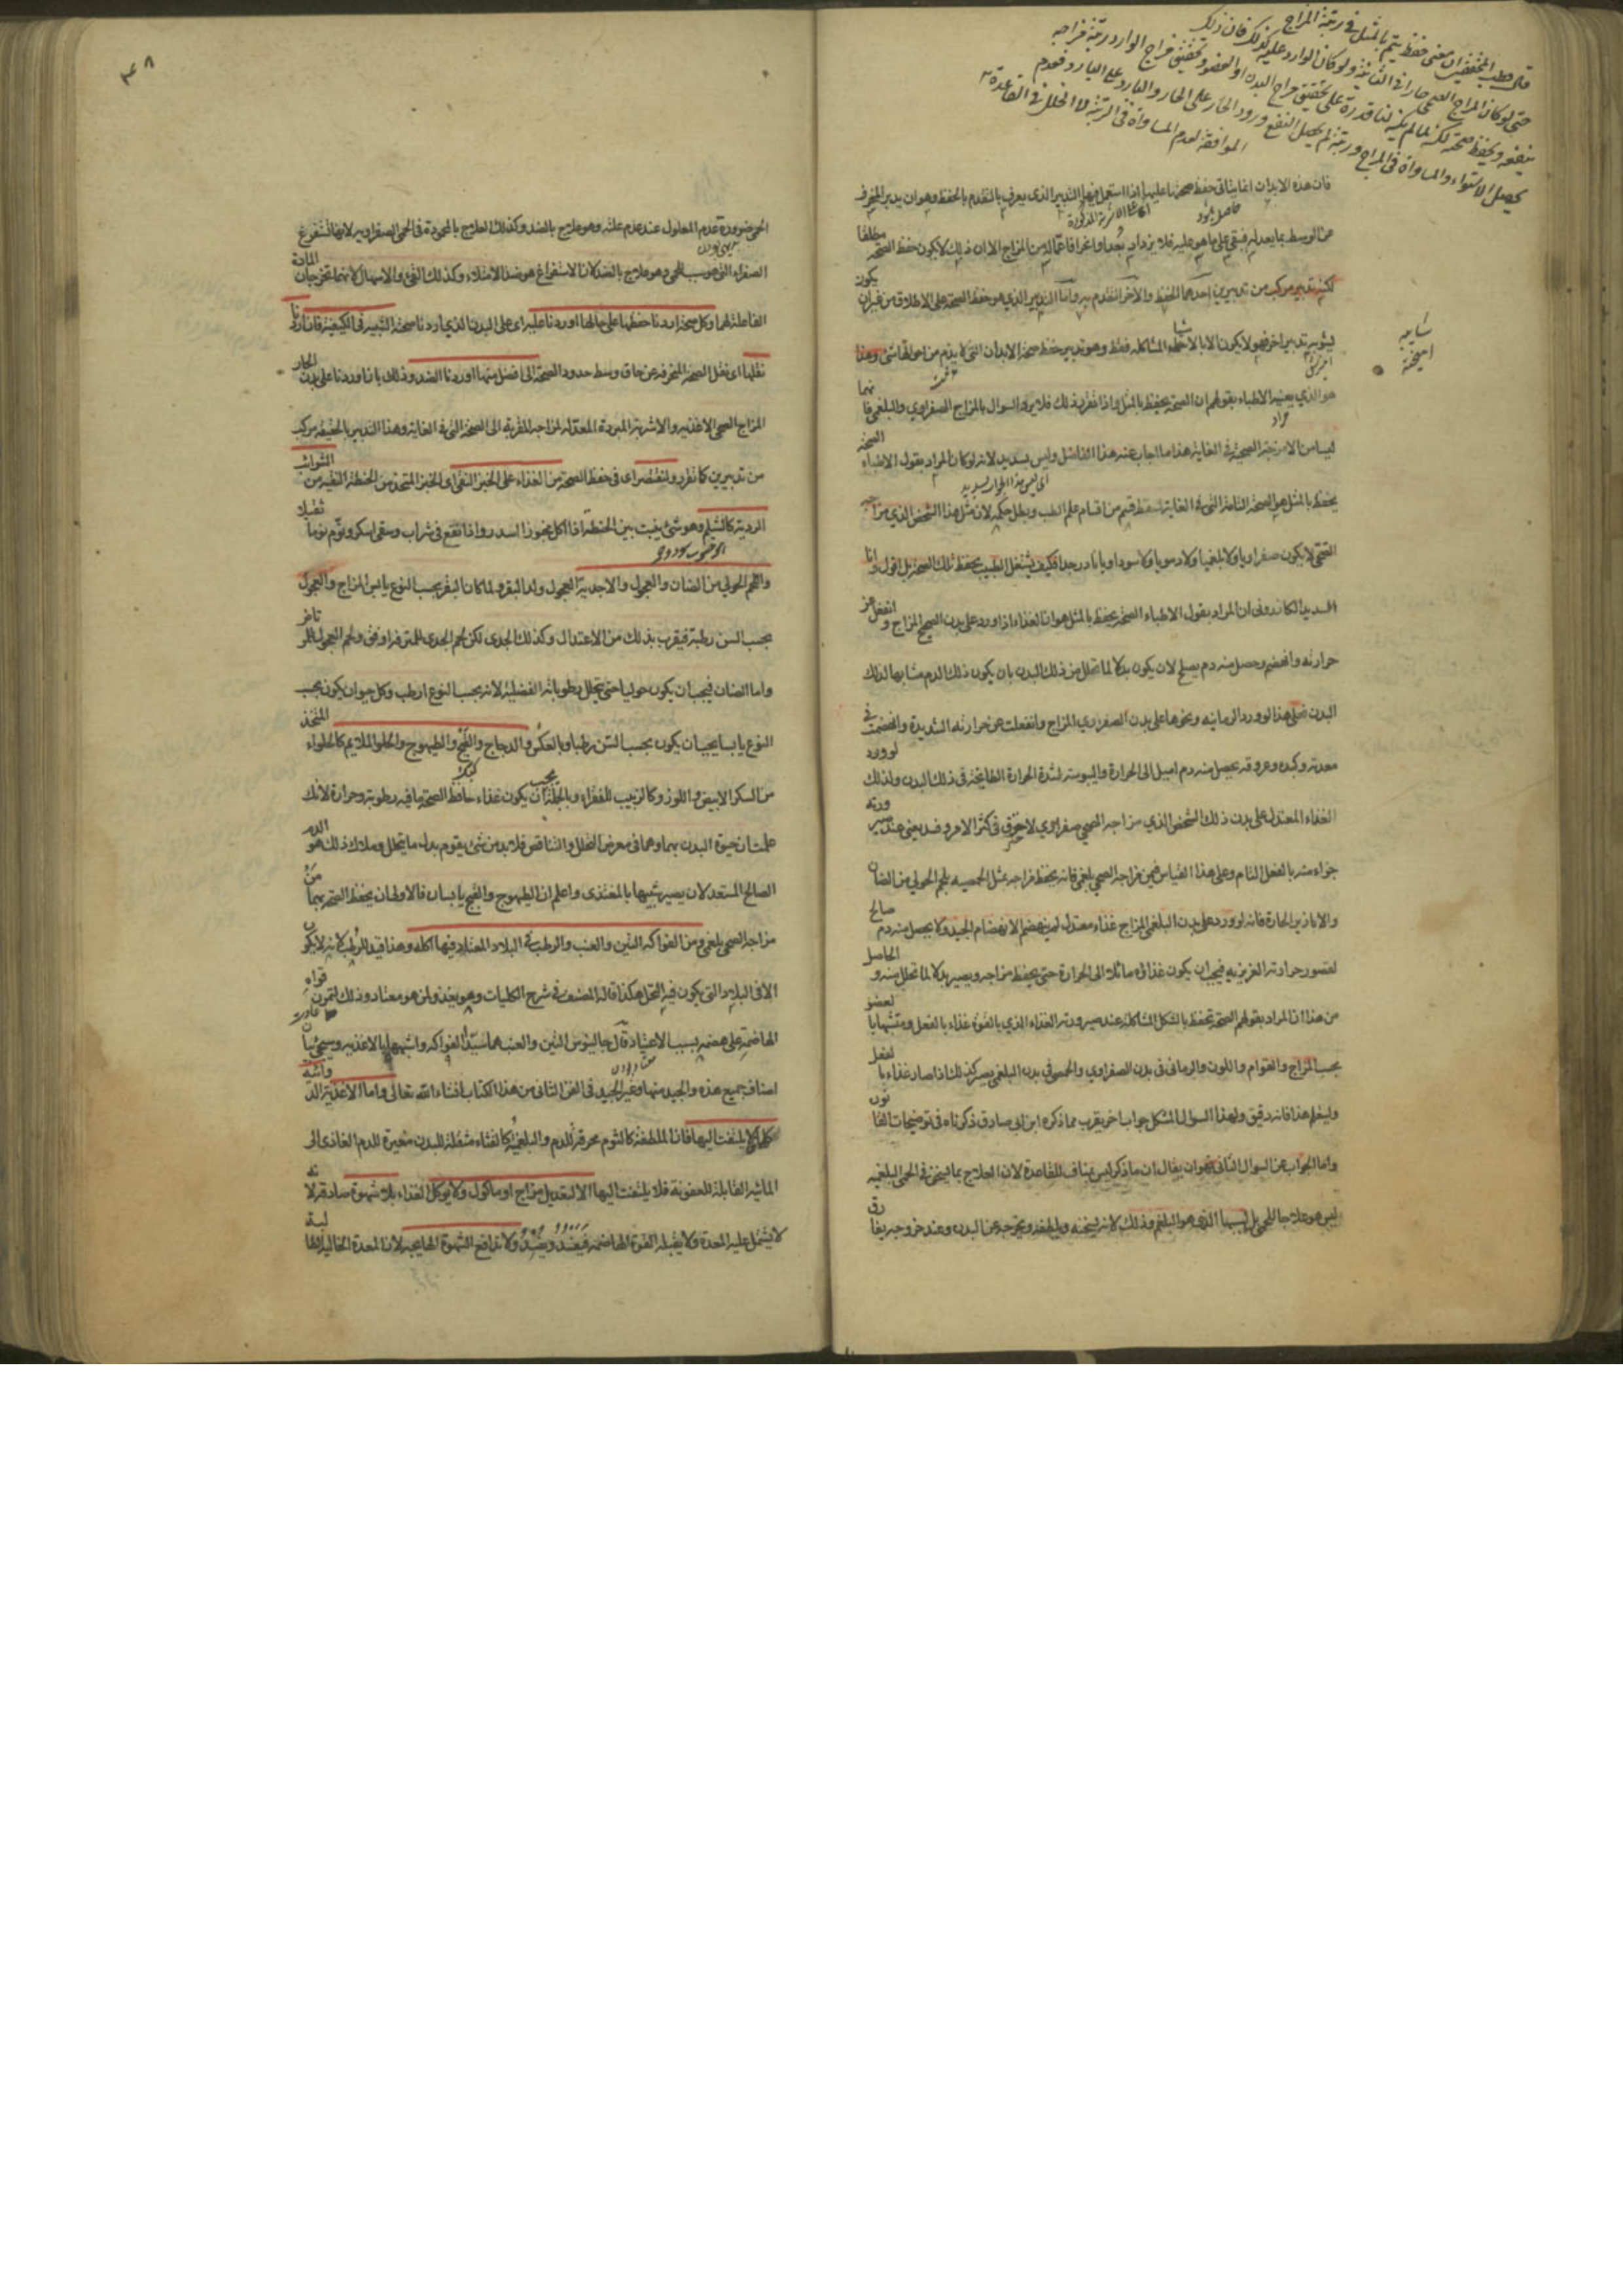 قال قطب المحققين معنى حفظ يتم بالمثل في رتبة المزاج
حتى لو كان المزاج الصحي حارا في الثانية ولو كان الوارد عليه كذلك فان ذلك
ينفعه ويحفظ صحته لكنه لما لم يكن لنا قدرة على تحقيق مزاج البدن او العضو وتحقيق مزاج الوارد رتبة مزاجه
يحصل الاستواء والمساواة في المزاج ورتبته لم يحصل النفع ورود الحار على الحار والبارد على البارد فعدم
الموافقة لعدم المساواة في الرتبة لا لخلل في القاعدة
فان هذه الابدان اما يتأتى حفظ صحتها عليها اذا استعمل فيها التدبير الذى يعرف بالتقدم بالحفظ وهو ان يدبر المنحرف
عن الوسط بما يعدله فيبقى على ما هو عليه فلا يزداد بعدا وانحرافا عما له من المزاج الا ان ذلك لا يكون حفظ الصحة مطلقا
لكنه تدبير مركب من تدبيرين احدهما الحفظ والآخر التقدم به واما التدبير الذي هو حفظ الصحة على الاطلاق من غير ان يكون
يشوبه تدبير اخر فهو لا يكون الا بالاشياء المشاكلة فقط وهو تدبير حفظ صحة الابدان التى لا يذم من احوالها شئ وهذا
هو الذي يعنيه الاطباء بقولهم ان الصحة يحفظ بالمثل واذا تقرر ذلك فلا يرد السوال بالمزاج الصفراوي والبلغمي فانهما
ليسا من الامزجة الصحية في الغاية هذا ما اجاب عنه هذا الفاضل وليس بسديد لانه لو كان المراد بقول الاطباء الصحة
يحفظ بالمثل هو الصحة التامة التى في الغاية لسقط قسم من اقسام علم الطب وبطل حكمه لان مثل هذا الشخص الذي مزاجه
الصحي لا يكون صفراويا ولا بلغميا ولا دمويا ولا سوداويا نادر جدا فكيف يشتغل الطبيب بحفظ تلك الصحة بل اقول وانا
السديد الكازروني ان المراد بقول الاطباء الصحة يحفظ بالمثل هو ان الغذاء اذا اورد على بدن الصحيح المزاج وانفعل عن
حرارته وانهضم وحصل منه دم يصلح لان يكون بدلا لما تحلل من ذلك البدن بان يكون ذلك الدم مشابها لذلك
البدن فعلى هذا لو ورد الرمانية ونحوها على بدن الصفراوي المزاج وانفعلت عن حرارته الشديدة وانهضمت في
معدته وكبده وعروقه يحصل منه دم اميل الى الحرارة واليبوسة لشدة الحرارة الطابخة في ذلك البدن ولذلك لو ورد
الغذاء المعتدل على بدن ذلك الشخص الذي مزاجه الصحي صفراوي لاحترق في اكثر الامر وفسد يعني عند صيرورته
جزاء منه بالفعل التام وعلى هذا القياس فمن مزاجه الصحي بلغمي فانه يحفظ مزاجه بمثل الحمصية بلحم الحولي من الضان
والابازير الحارة فانه لو ورد على بدن البلغمي المزاج غذاء معتدل لم ينهضم الانهضام الجيد ولا يحصل منه دم صالح
لقصور حرارته الغريزية فيجب ان يكون غذاؤه مائلا الى الحرارة حتى يحفظ مزاجه ويصير بدلا لما تحلل منه والحاصل
من هذا ان المراد بقولهم الصحة تحفظ بالشكل المشاكلة عند صيرورة الغذاء الذي بالقوة غذاء بالفعل ومتشبها بالعضو
بحسب المزاج والقوام واللون والرماني في بدن الصفراوي والحمصي في بدن البلغمي يصير كذلك اذا صار غذاء بالفعل
وليعلم هذا فانه دقيق ولهذا السوال المشكل جواب اخر يقرب مما ذكره ابن ابي صادق ذكرناه في توضيحات القانون
واما الجواب عن السوال الثاني فهو ان يقال ان ما ذكر ليس بمناف للقاعدة لان العلاج بما يسخن في الحمى البلغمية
ليس هو علاجا للحمى بل لسببها الذي هو البلغم وذلك لانه يسخنه ويلطفه ويخرجه عن البدن وعند خروجه يفارق
٣٤٨
الحمى ضرورة عدم المعلول عند عدم علته وهو علاج بالضد وكذلك العلاج بالمحمودة في الحمى الصفراوية لانها تستفرغ
الصفراء التى هي سبب للحمى وهو علاج بالضد لان الاستفراغ هو ضد الامتلاء وكذلك القئ والاسهال لانهما تخرجان المادة
الفاعلة لهما وكل صحة اردنا حفظها على حالها اوردنا عليه اى على البدن الذي اردنا صحته الشبيه في الكيفية فان اردنا
نقلها اى نقل الصحة المنحرفة عن حاق وسط حدود الصحة الى افضل منها اوردنا الضد وذلك بانا اوردنا على بدن الحار
المزاج الصحي الاغذية والاشربة المبردة المعدلة لمزاجه المقربة الى الصحة التى في الغاية وهذا التدبير بالحقيقة مركب
من تدبيرين كما تقرر ولنقتصر اى في حفظ الصحة من الغذاء على الخبز النقي اى الخبز المتخذ من الحنطة النقية من الشوائب
الردية كالشيلم وهو شئ ينبت بين الحنطة اذا اكل مخبوزا اسدر واذا انقع في شراب وسقى اسكر ونوم نوما ثقيلا
واللحم الحولي من الضان والعجول والاجدية العجول ولد البقر ولما كان البقر بحسب النوع يابس المزاج والعجول
بحسب السن رطبة فيقرب بذلك من الاعتدال وكذلك الجدى لكن لحم الجدى للمترفه اوفق ولحم العجول
واما الضان فيجب ان يكون حوليا حتى يتحلل رطوباته الفضلية لانه بحسب النوع ارطب وكل حيوان يكون بحسب
النوع يابسا يجب ان يكون بحسب السن رطبا وبالعكس والدجاج والقبج والطيهوج والحلو الملايم كالحلواء المتخذ
من السكر الابيض واللوز وكالزبيب للفقراء وبالجملة يجب ان يكون غذاء حافظ الصحة ما فيه رطوبة وحرارة لانك
علمت ان حيوة البدن بهما وهما في معرض التحلل والتناقص فلا بد من شئ يقوم بدل ما يتحلل وملاك ذلك هو الدم
الصالح المستعد لان يصير شبيها بالمغتذى واعلم ان الطيهوج والقبج يابسان فالاولى ان يحفظ الصحة بهما من
مزاجه الصحي بلغمي ومن الفواكه التين والعنب والرطب في البلاد المعتاد فيها اكله وهذا قيد للرطب لانه لا يكون
الا في البلاد التى يكون فيه النخل هكذا قاله المصنف في شرح الكليات وهو جيد ولمن هو معتاد وذلك لتمرن قواه
الهاضمة على هضمه بسبب الاعتياد قال جالينوس التين والعنب هما سيدا الفواكه واشبهها بالاغذية وسيجئ بيان
اصناف جميع هذه والجيد منها وغير الجيد في الفن الثاني من هذا الكتاب انشاء الله تعالى واما الاغذية الدوائية
كلها فلا يلتفت اليها فان الملطفة كالثوم محرقة للدم والبلغمية كالقثاء مثقلة للبدن مغيرة للدم الغاذى الى
المائية القابلة للعفونة فلا يلتفت اليها الا لتعديل مزاج او ماكول ولا يوكل الغذاء بلا شهوة صادقة لانه
لا يشتمل عليه المعدة ولا يقبله القوة الهاضمة فيفسد ويفسد ولا تدافع الشهوة الهايجة لان المعدة الخالية